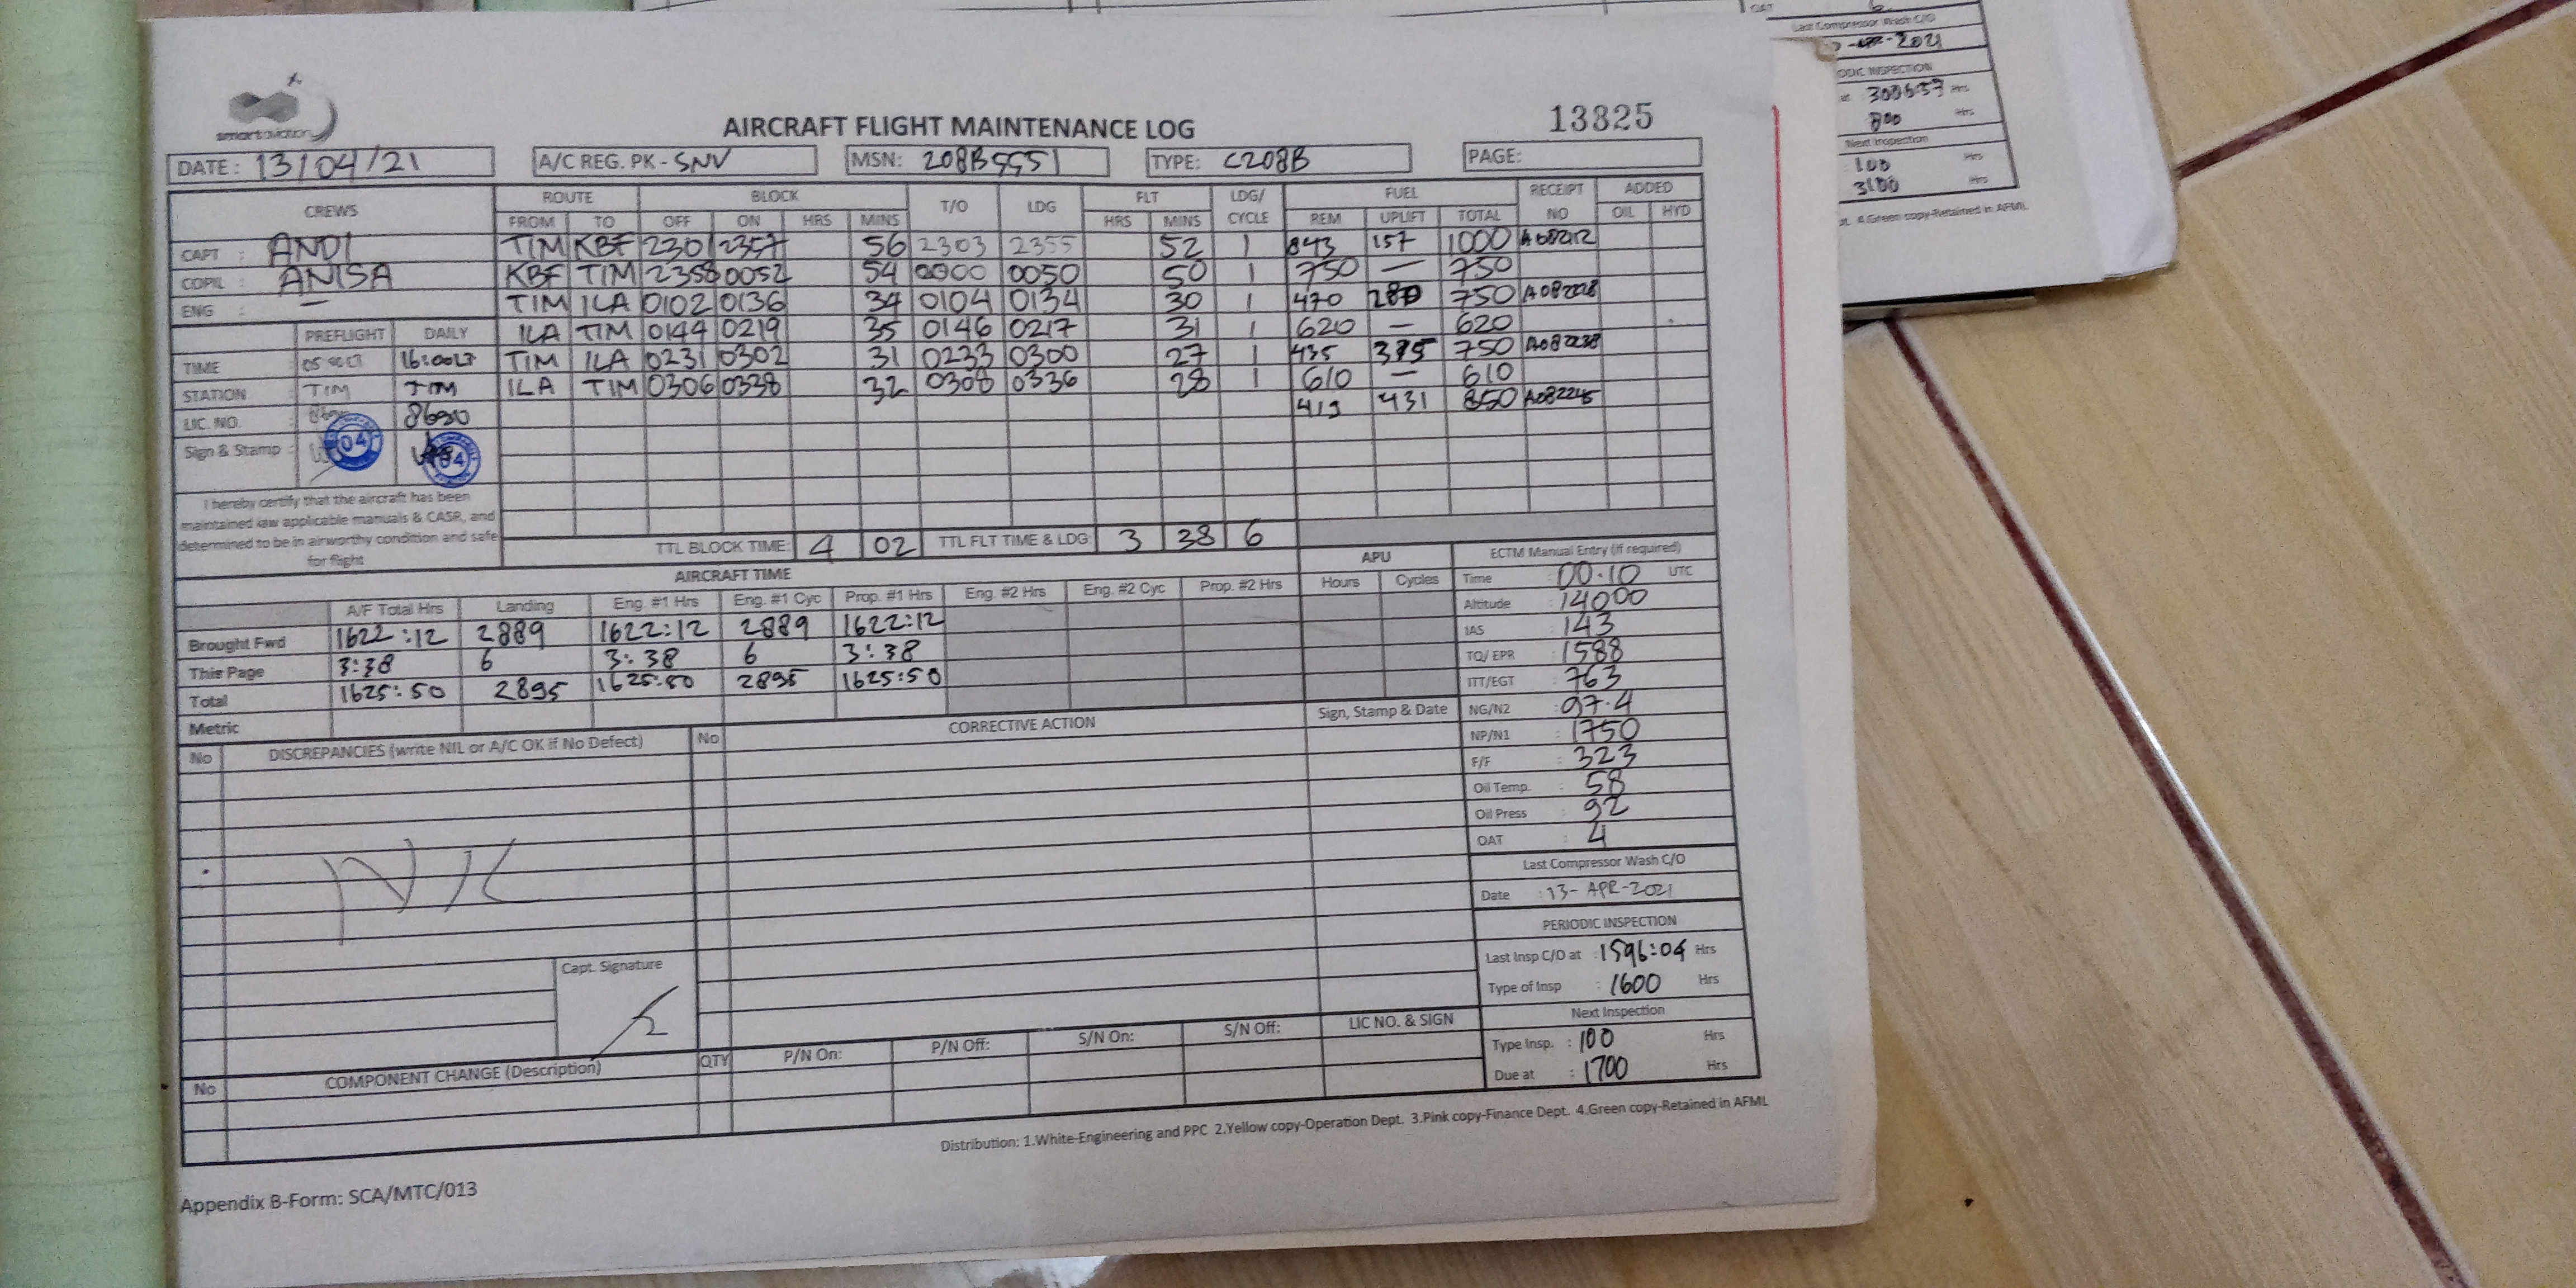 smart aviation
AIRCRAFT FLIGHT MAINTENANCE LOG
13825
DATE : 13/04/21 A/C REG. PK - SNV MSN: 208B5551 TYPE: C208B PAGE:
CREWS ROUTE BLOCK T/O LDG FLT LDG/CYCLE FUEL RECEIPT NO ADDED
FROM TO OFF ON HRS MINS HRS MINS REM UPLIFT TOTAL OIL HYD
CAPT : ANDI TIM KBF 2301 2357 56 2303 2355 52 1 843 157 1000
COPIL : ANISA KBF TIM 2358 0052 54 0000 0050 50 1 750 — 750
ENG : — TIM ILA 0102 0136 34 0104 0134 30 1 470 280 750 A082228
ILA TIM 0144 0219 35 0146 0217 31 1 620 — 620
PREFLIGHT DAILY
TIME 16:00LT TIM ILA 0231 0302 31 0233 0300 27 1 435 750 A082238
STATION TIM TIM ILA TIM 0306 0338 32 0308 0336 28 1 610 — 610
LIC. NO. : 8690 419 431 850 A082245
Sign & Stamp : 04 04
I hereby certify that the aircraft has been
maintained iaw applicable manuals & CASR, and
determined to be in airworthy condition and safe
for flight
TTL BLOCK TIME: 4 02 TTL FLT TIME & LDG: 3 38 6
AIRCRAFT TIME APU
A/F Total Hrs Landing Eng. #1 Hrs Eng. #1 Cyc Prop. #1 Hrs Eng. #2 Hrs Eng. #2 Cyc Prop. #2 Hrs Hours Cycles
Brought Fwd 1622:12 2889 1622:12 2889 1622:12
This Page 3:38 6 3:38 6 3:38
Total 1625:50 2895 1625:50 2895 1625:50
Metric
ECTM Manual Entry (If required)
Time : 00.10 UTC
Altitude : 14000
IAS : 143
TQ/ EPR : 1588
ITT/EGT : 763
NG/N2 : 97.4
NP/N1 : 1750
F/F : 323
Oil Temp. : 58
Oil Press : 92
OAT : 4
Last Compressor Wash C/O
Date : 13- APR-2021
PERIODIC INSPECTION
Last Insp C/O at : 1596:04 Hrs
Type of Insp : 1600 Hrs
Next Inspection
Type Insp. : 100 Hrs
Due at : 1700 Hrs
No DISCREPANCIES (write NIL or A/C OK if No Defect) No CORRECTIVE ACTION Sign, Stamp & Date
NIL
Capt. Signature
No COMPONENT CHANGE (Description) QTY P/N On: P/N Off: S/N On: S/N Off: LIC NO. & SIGN
Distribution: 1.White-Engineering and PPC 2.Yellow copy-Operation Dept. 3.Pink copy-Finance Dept. 4.Green copy-Retained in AFML
Appendix B-Form: SCA/MTC/013
OAT
Last Compressor Wash C/O
2021
INSPECTION
Hrs
800 Hrs
Next Inspection
100 Hrs
3100 Hrs
4.Green copy-Retained in AFML